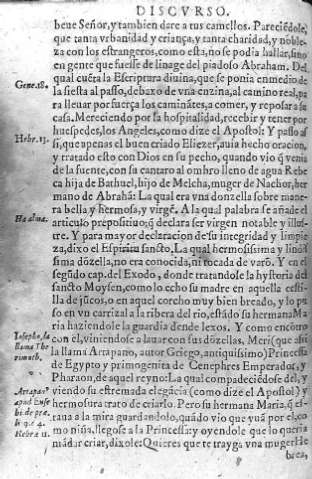 DISCVRSO.
beue Señor, y tambien dare a tus camellos. Pareciédole,
que tanta vrbanidad y criança, y tanta charidad, y noble-
za con los estrangeros, como esta, no se podia hallar, sino
en gente que fuesse de linage del piadoso Abraham. Del
qual cuéta la Escriptura diuina, que se ponia en medio de
la siesta al passo, debaxo de vna enzina, al camino real, pa
ra lleuar por fuerça los caminātes, a comer, y reposar a su
casa. Mereciendo por la hospitalidad, recebir y tener por
huespedes, los Angeles, como dize el Apostol: Y passo as
si, que apenas el buen criado Eliezer, auia hecho oracion,
y tratado esto con Dios en su pecho, quando vio q̄ venia
de la fuente, con su cantaro al ombro lleno de agua Rebe
ca hija de Bathuel, hijo de Melcha, muger de Nachor, her
mano de Abrahā: La qual era vna donzella sobre mane-
ra bella y hermosa, y virgē. A la qual palabra se añade el
articulo prepositiuo, q̄ declara ser virgen notable, y illu-
stre. Y para mayor declaracion de su integridad y limpie
za, dixo el Espiritu sancto, La qual hermosissima y lindis
sima dōzella, no era conocida, ni tocada de varō. Y en el
segūdo cap. del Exodo, donde tratandose la hysteria del
sancto Moysen, como lo echo su madre en aquella cesti-
lla de jūcos, o en aquel corcho muy bien breado, y lo pu
so en vn carrizal a la ribera del rio, estādo su hermana Ma
ria haziendole la guardia dende lexos. Y como encōtro
con el, viniendose a lauar con sus dōzellas, Meri (que assi
la llama Arrapano, autor Griego, antiquissimo) Princessa
de Egypto y primogenita de Cenephres Emperador, y
Pharaon, de aquel reyno: La qual compadeciēdose del, y
viendo su estremada elegācia (como dize el Apostol) y
hermosura trato de criarlo. Pero su hermana Maria, q̄ es-
taua a la mira guardandolo, quādo vio que yua por el, co
mo niña, llegose a la Princessa: y oyendole que lo queria
mādar criar, dixole: Quieres que te trayga vna muger He
brea,
Gene. 18.
Hebr. 13.
Ha alma.
Iosepho, la
llama The
rmuth.
Arrapa.
apud Euse
bi de præ.
li 9. c. 4.
Hebræ 11.